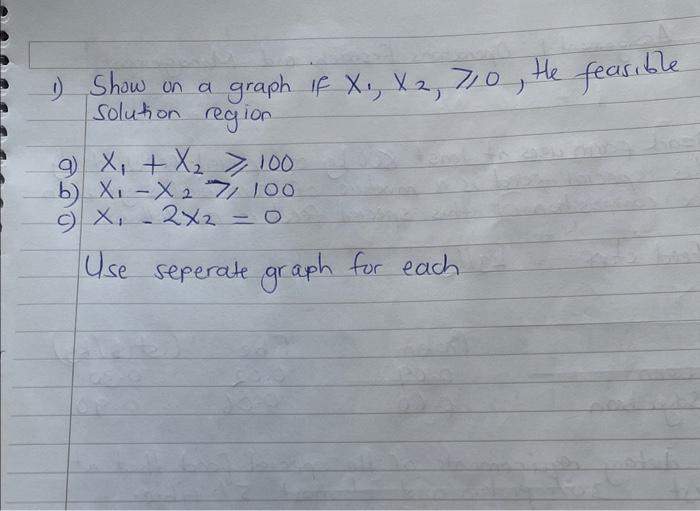 1) Show on a graph if X₁, X₂, ⩾0, the feasible
solution region
a) X₁ + X₂ ⩾ 100
b) X₁ - X₂ ⩾ 100
c) X₁ - 2X₂ = 0
Use seperate graph for each